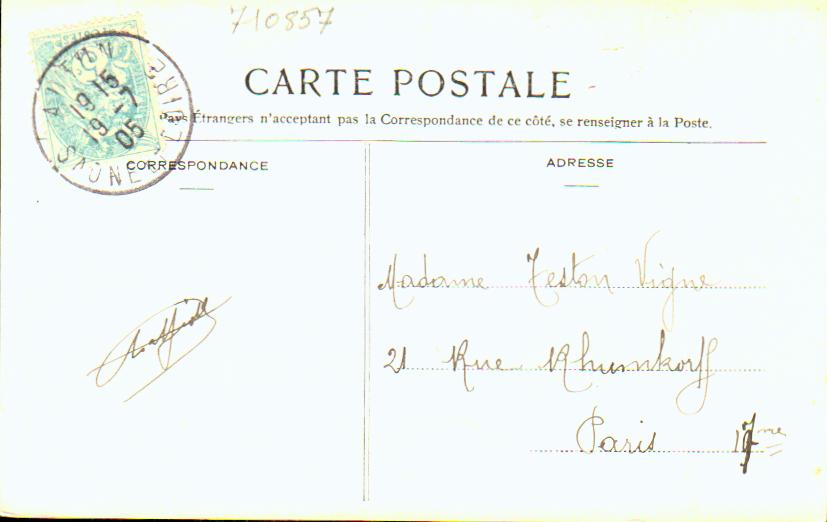 710857
19 15
19 -7
05
SAONE
LOIRE
CARTE POSTALE
Pays Étrangers n'acceptant pas la Correspondance de ce côté, se renseigner à la Poste.
CORRESPONDANCE
ADRESSE
Madame Teston Vigne
21 Rue Rhumkorff
Paris 17me